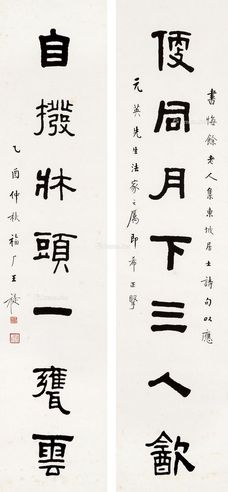 書悔餘老人集東坡居士詩句以應
便同月下三人㱃
元英先生法家之屬即希正
自撥牀頭一甕雲
乙酉仲秋福厂王禔